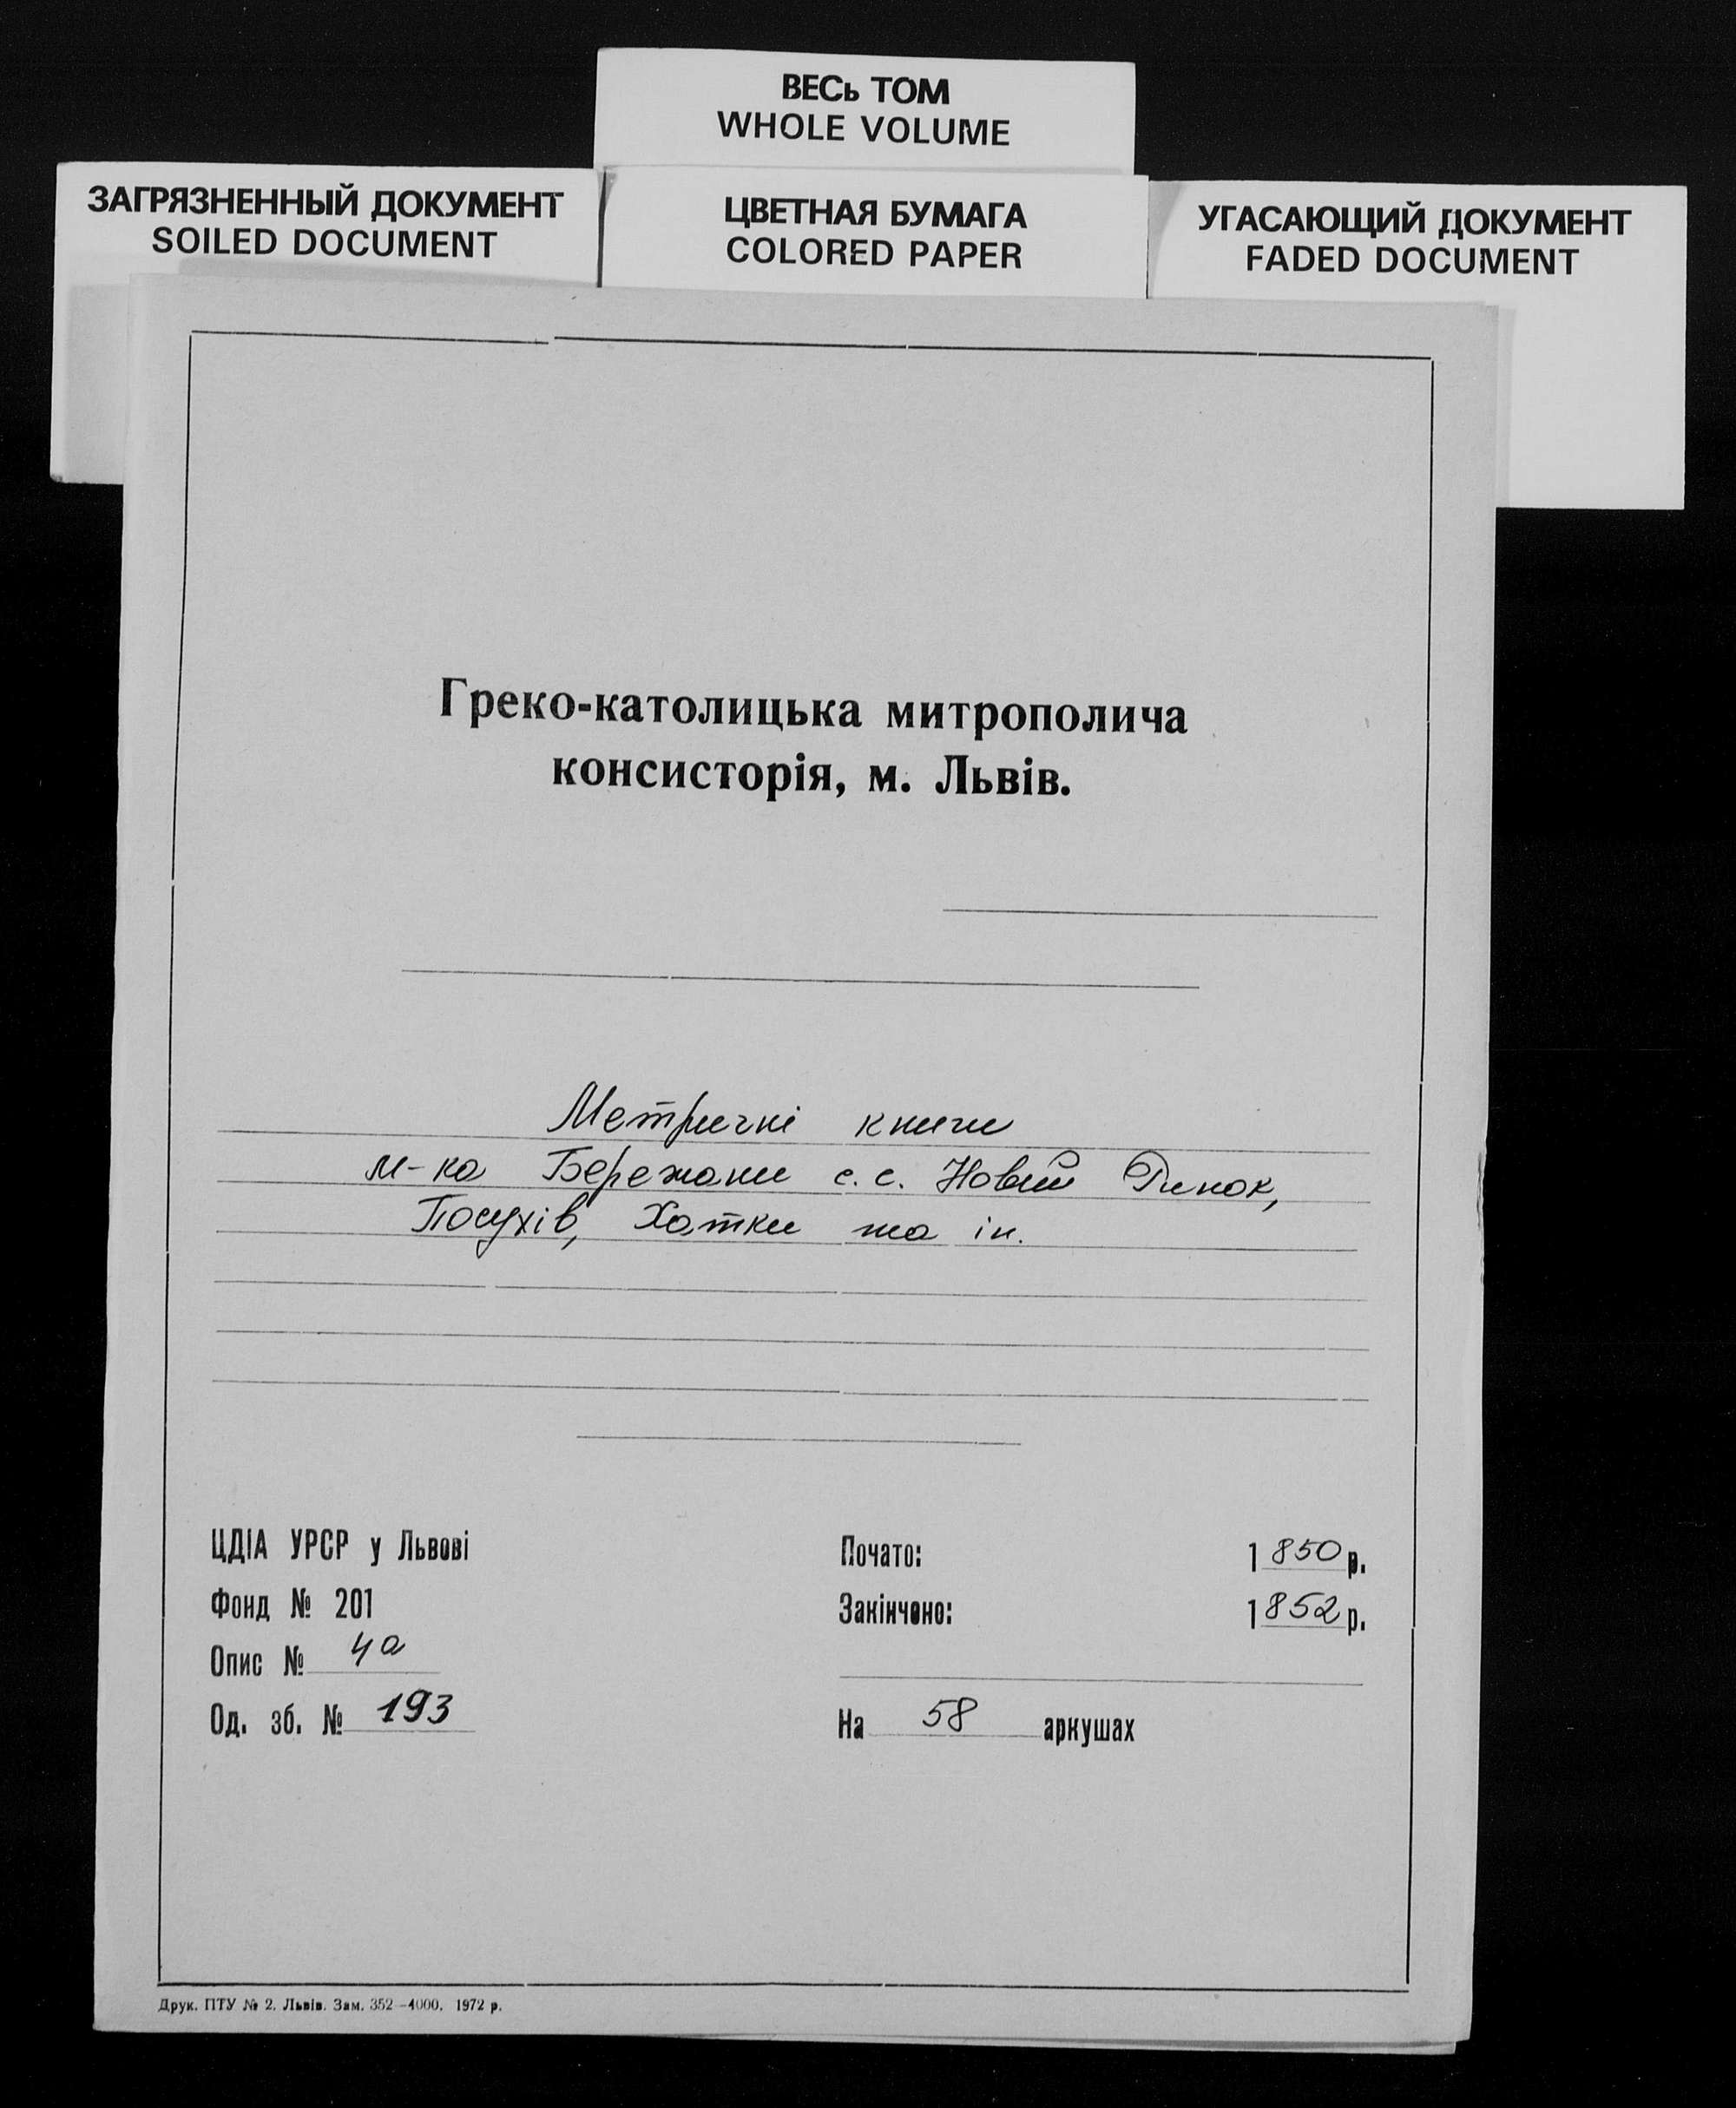 ВЕСЬ ТОМ
WHOLE VOLUME
ЗАГРЯЗНЕННЫЙ ДОКУМЕНТ
SOILED DOCUMENT
ЦВЕТНАЯ БУМАГА
COLORED PAPER
УГАСАЮЩИЙ ДОКУМЕНТ
FADED DOCUMENT
Греко-католицька митрополича
консисторія, м. Львів.
Метричні книги
м-ка Бережани с.с. Новий Ринок,
Посухів, Хатки та ін.
ЦДІА УРСР у Львові
Фонд № 201
Опис № 4а
Од. зб. № 193
Почато: 1850 р.
Закінчено: 1852 р.
На 58 аркушах
Друк. ПТУ № 2. Львів. Зам. 352—4000. 1972 р.